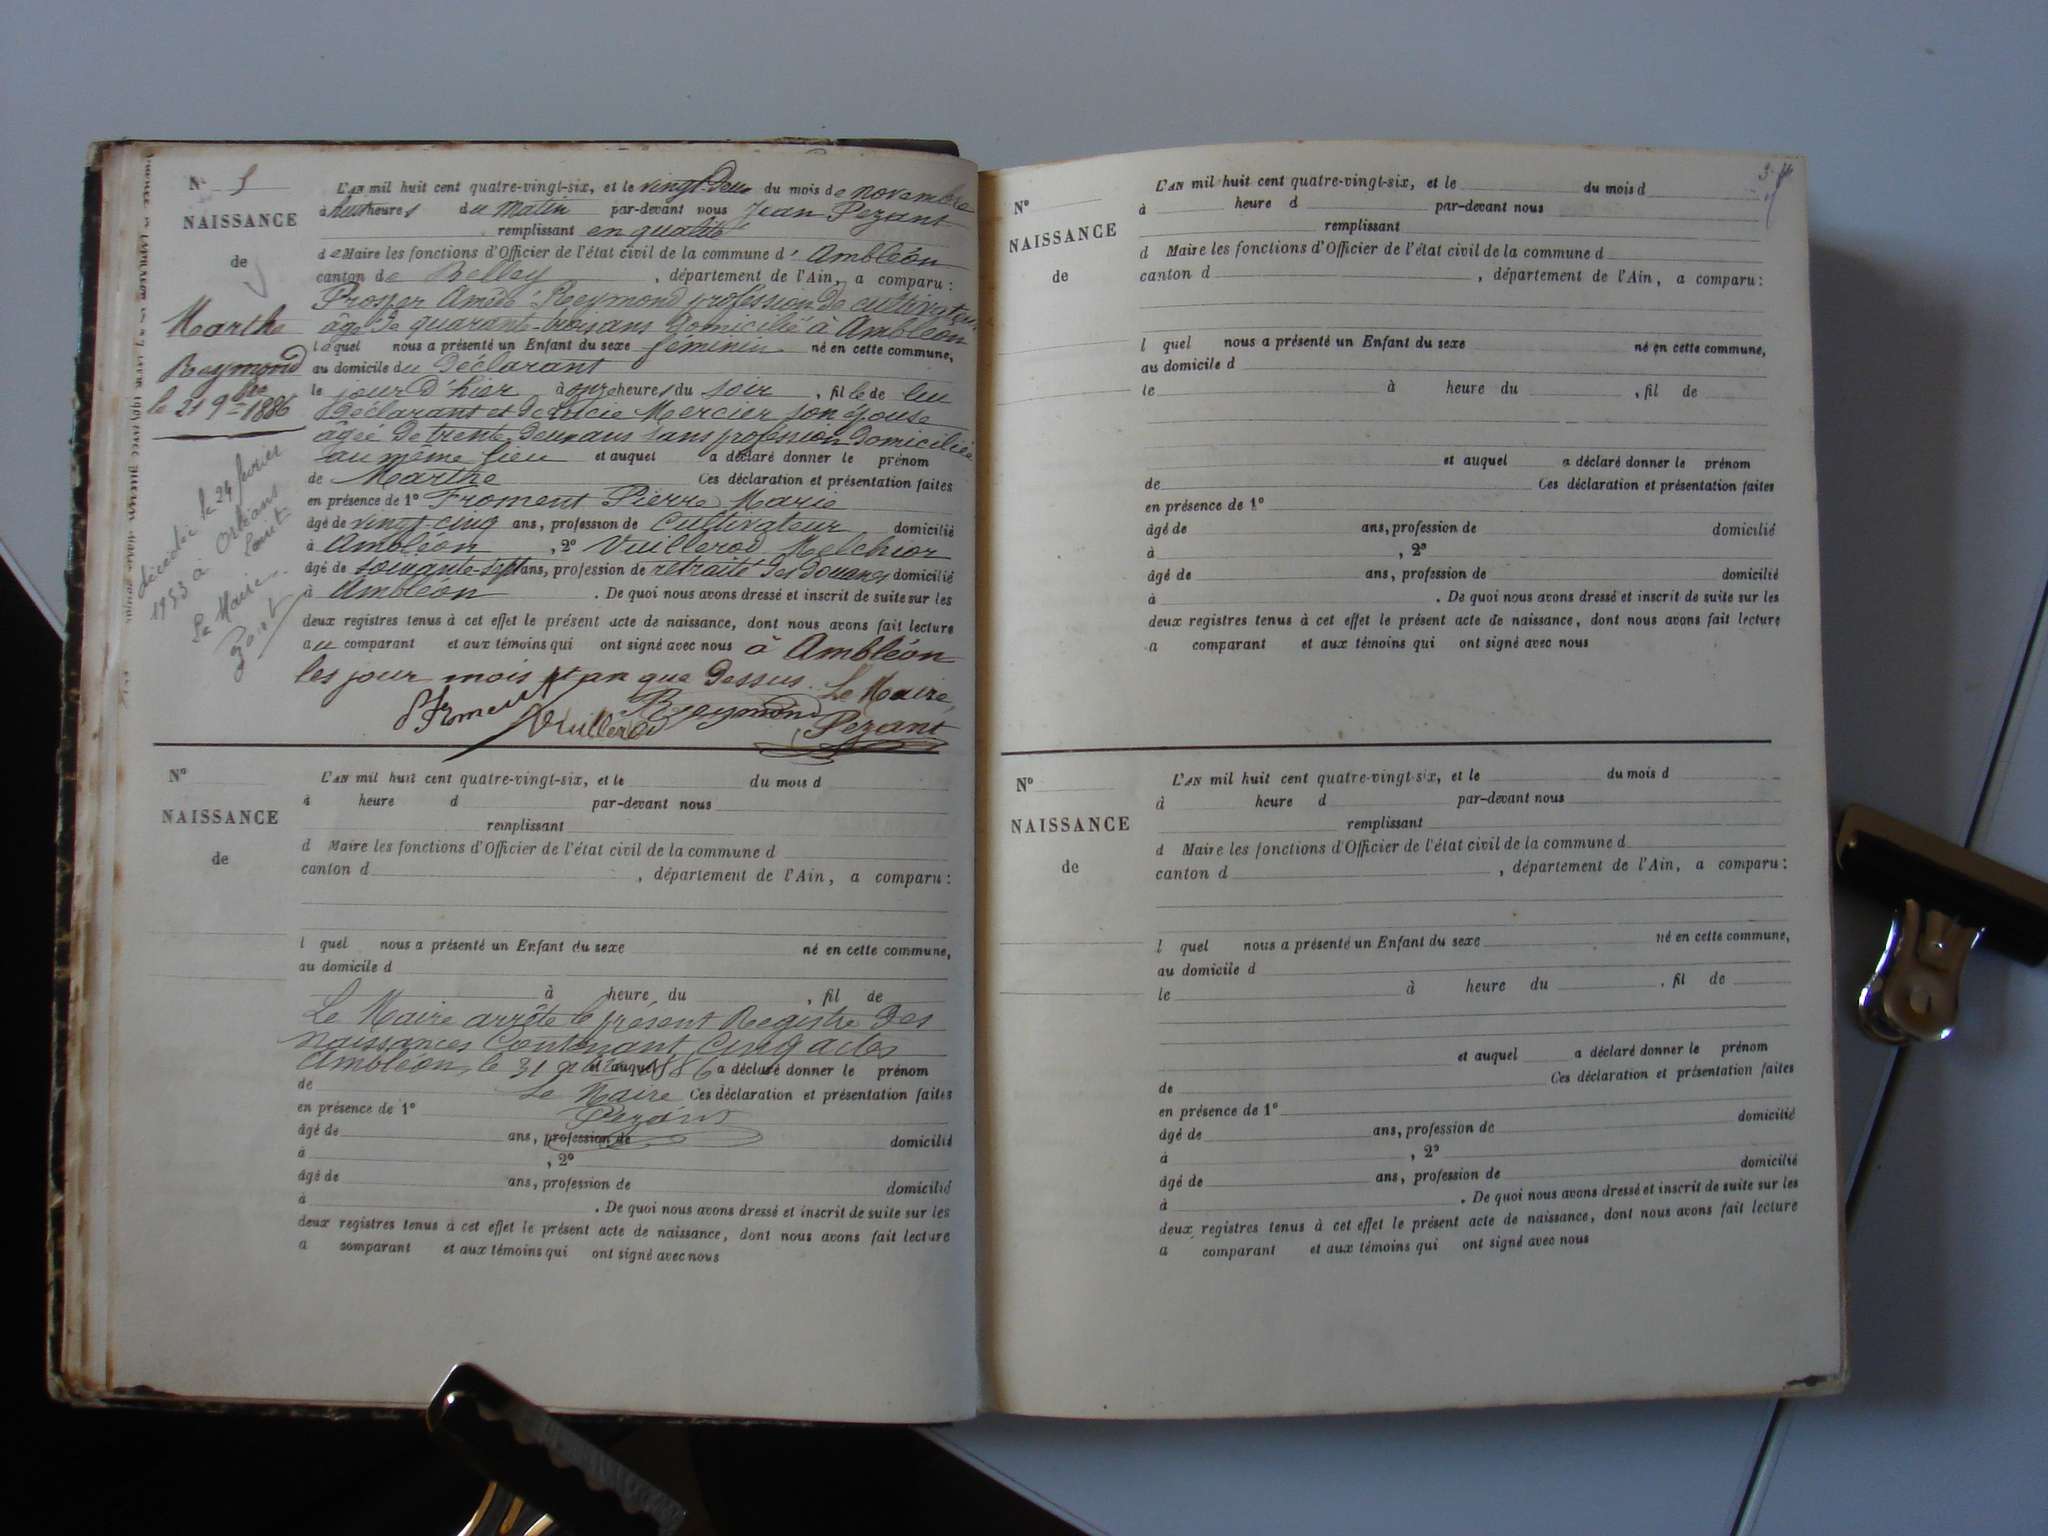 N° 5
NAISSANCE
de
Marthe
Reymond
le 21 9bre 1886
décédée le 24 février
1953 à Orléans
Loiret
Le Maire
L'AN mil huit cent quatre-vingt-six, et le vingt-deux du mois de novembre
à huit heures du Matin par-devant nous Jean Pezant
remplissant en qualité
de Maire les fonctions d'Officier de l'état civil de la commune d'Ambléon
canton de Belley, département de l'Ain, a comparu :
Prosper Amédé Reymond profession de cultivateur
âgé de quarante-trois ans domicilié à Ambléon
lequel nous a présenté un Enfant du sexe féminin né en cette commune,
au domicile du Déclarant
le jour d'hier à onze heures du soir, fille de lui
Déclarant et de Lucie Mercier son épouse
âgée de trente deux ans sans profession domiciliée
au même lieu et auquel a déclaré donner le prénom
de Marthe Ces déclaration et présentation faites
en présence de 1° Froment Pierre Marie
âgé de vingt-cinq ans, profession de Cultivateur domicilié
à Ambléon, 2° Vuillerod Melchior
âgé de soixante-sept ans, profession de retraité des douanes domicilié
à Ambléon. De quoi nous avons dressé et inscrit de suite sur les
deux registres tenus à cet effet le présent acte de naissance, dont nous avons fait lecture
au comparant et aux témoins qui ont signé avec nous à Ambléon
les jour mois et an que dessus. Le Maire,
Froment Vuillerod Reymond Pezant
N°
NAISSANCE
de
L'AN mil huit cent quatre-vingt-six, et le du mois d
à heure d par-devant nous
remplissant
d Maire les fonctions d'Officier de l'état civil de la commune d
canton d , département de l'Ain, a comparu :
l quel nous a présenté un Enfant du sexe né en cette commune,
au domicile d
à heure du , fil de
Le Maire arrête le présent Registre des
naissances Contenant Cinq actes
Ambléon, le 31 1886 et auquel a déclaré donner le prénom
de Le Maire Ces déclaration et présentation faites
en présence de 1° Pezant
âgé de ans, profession de domicilié
à , 2°
âgé de ans, profession de domicilié
à . De quoi nous avons dressé et inscrit de suite sur les
deux registres tenus à cet effet le présent acte de naissance, dont nous avons fait lecture
a comparant et aux témoins qui ont signé avec nous
N°
NAISSANCE
de
L'AN mil huit cent quatre-vingt-six, et le du mois d
à heure d par-devant nous
remplissant
d Maire les fonctions d'Officier de l'état civil de la commune d
canton d , département de l'Ain, a comparu :
l quel nous a présenté un Enfant du sexe né en cette commune,
au domicile d
le à heure du , fil de
et auquel a déclaré donner le prénom
de Ces déclaration et présentation faites
en présence de 1°
âgé de ans, profession de domicilié
à , 2°
âgé de ans, profession de domicilié
à . De quoi nous avons dressé et inscrit de suite sur les
deux registres tenus à cet effet le présent acte de naissance, dont nous avons fait lecture
a comparant et aux témoins qui ont signé avec nous
N°
NAISSANCE
de
L'AN mil huit cent quatre-vingt-six, et le du mois d
à heure d par-devant nous
remplissant
d Maire les fonctions d'Officier de l'état civil de la commune d
canton d , département de l'Ain, a comparu :
l quel nous a présenté un Enfant du sexe né en cette commune,
au domicile d
le à heure du , fil de
et auquel a déclaré donner le prénom
de Ces déclaration et présentation faites
en présence de 1°
âgé de ans, profession de domicilié
à , 2°
âgé de ans, profession de domicilié
à . De quoi nous avons dressé et inscrit de suite sur les
deux registres tenus à cet effet le présent acte de naissance, dont nous avons fait lecture
a comparant et aux témoins qui ont signé avec nous